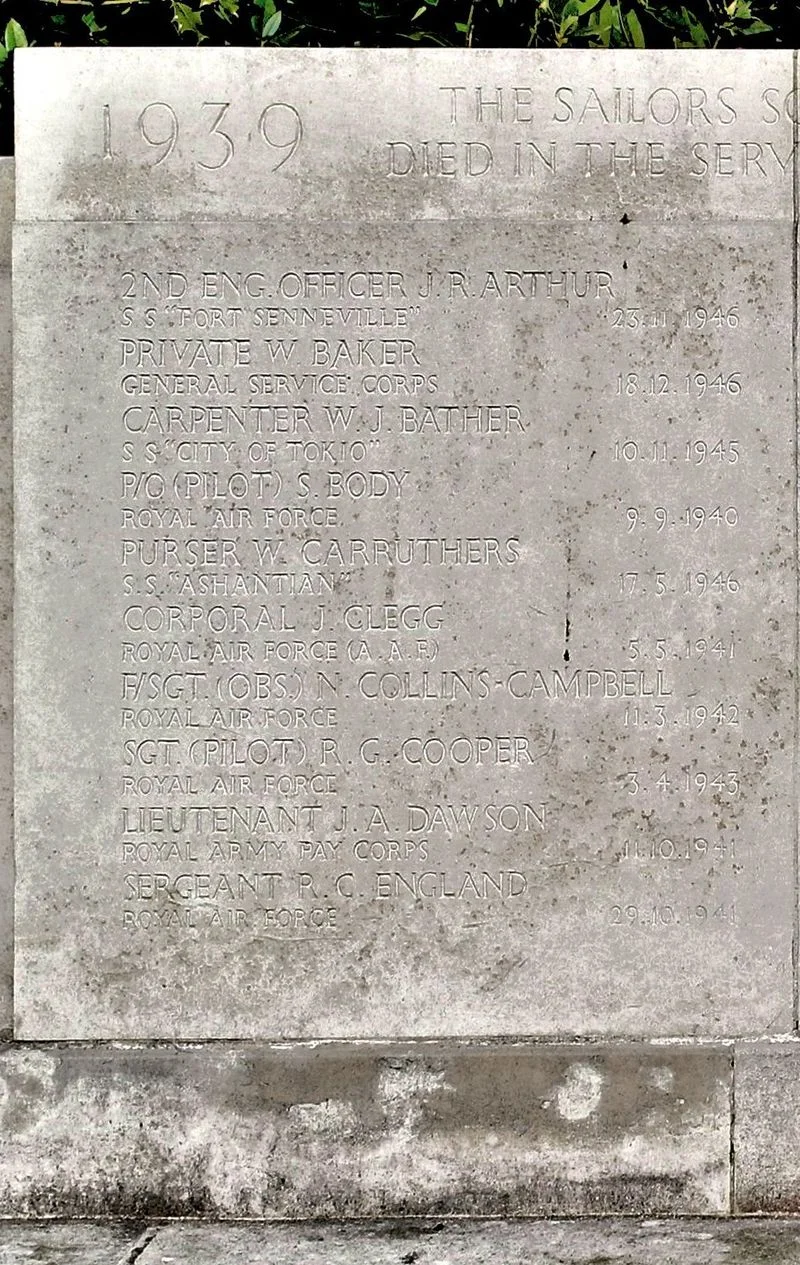 1939
THE SAILORS
DIED IN THE
2ND ENG. OFFICER J. R. ARTHUR
S S "FORT SENNEVILLE" 23.11.1946
PRIVATE W. BAKER
GENERAL SERVICE CORPS 18.12.1946
CARPENTER W. J. BATHER
S S "CITY OF TOKIO" 10.11.1945
P/O (PILOT) S. BODY
ROYAL AIR FORCE 9.9.1940
PURSER W. CARRUTHERS
S.S. "ASHANTIAN" 17.5.1946
CORPORAL J. CLEGG
ROYAL AIR FORCE (A.A.F.) 5.5.1941
F/SGT. (OBS.) N. COLLINS-CAMPBELL
ROYAL AIR FORCE 11.3.1942
SGT. (PILOT) R. G. COOPER
ROYAL AIR FORCE 3.4.1943
LIEUTENANT J. A. DAWSON
ROYAL ARMY PAY CORPS 11.10.1941
SERGEANT R. C. ENGLAND
ROYAL AIR FORCE 29.10.1941